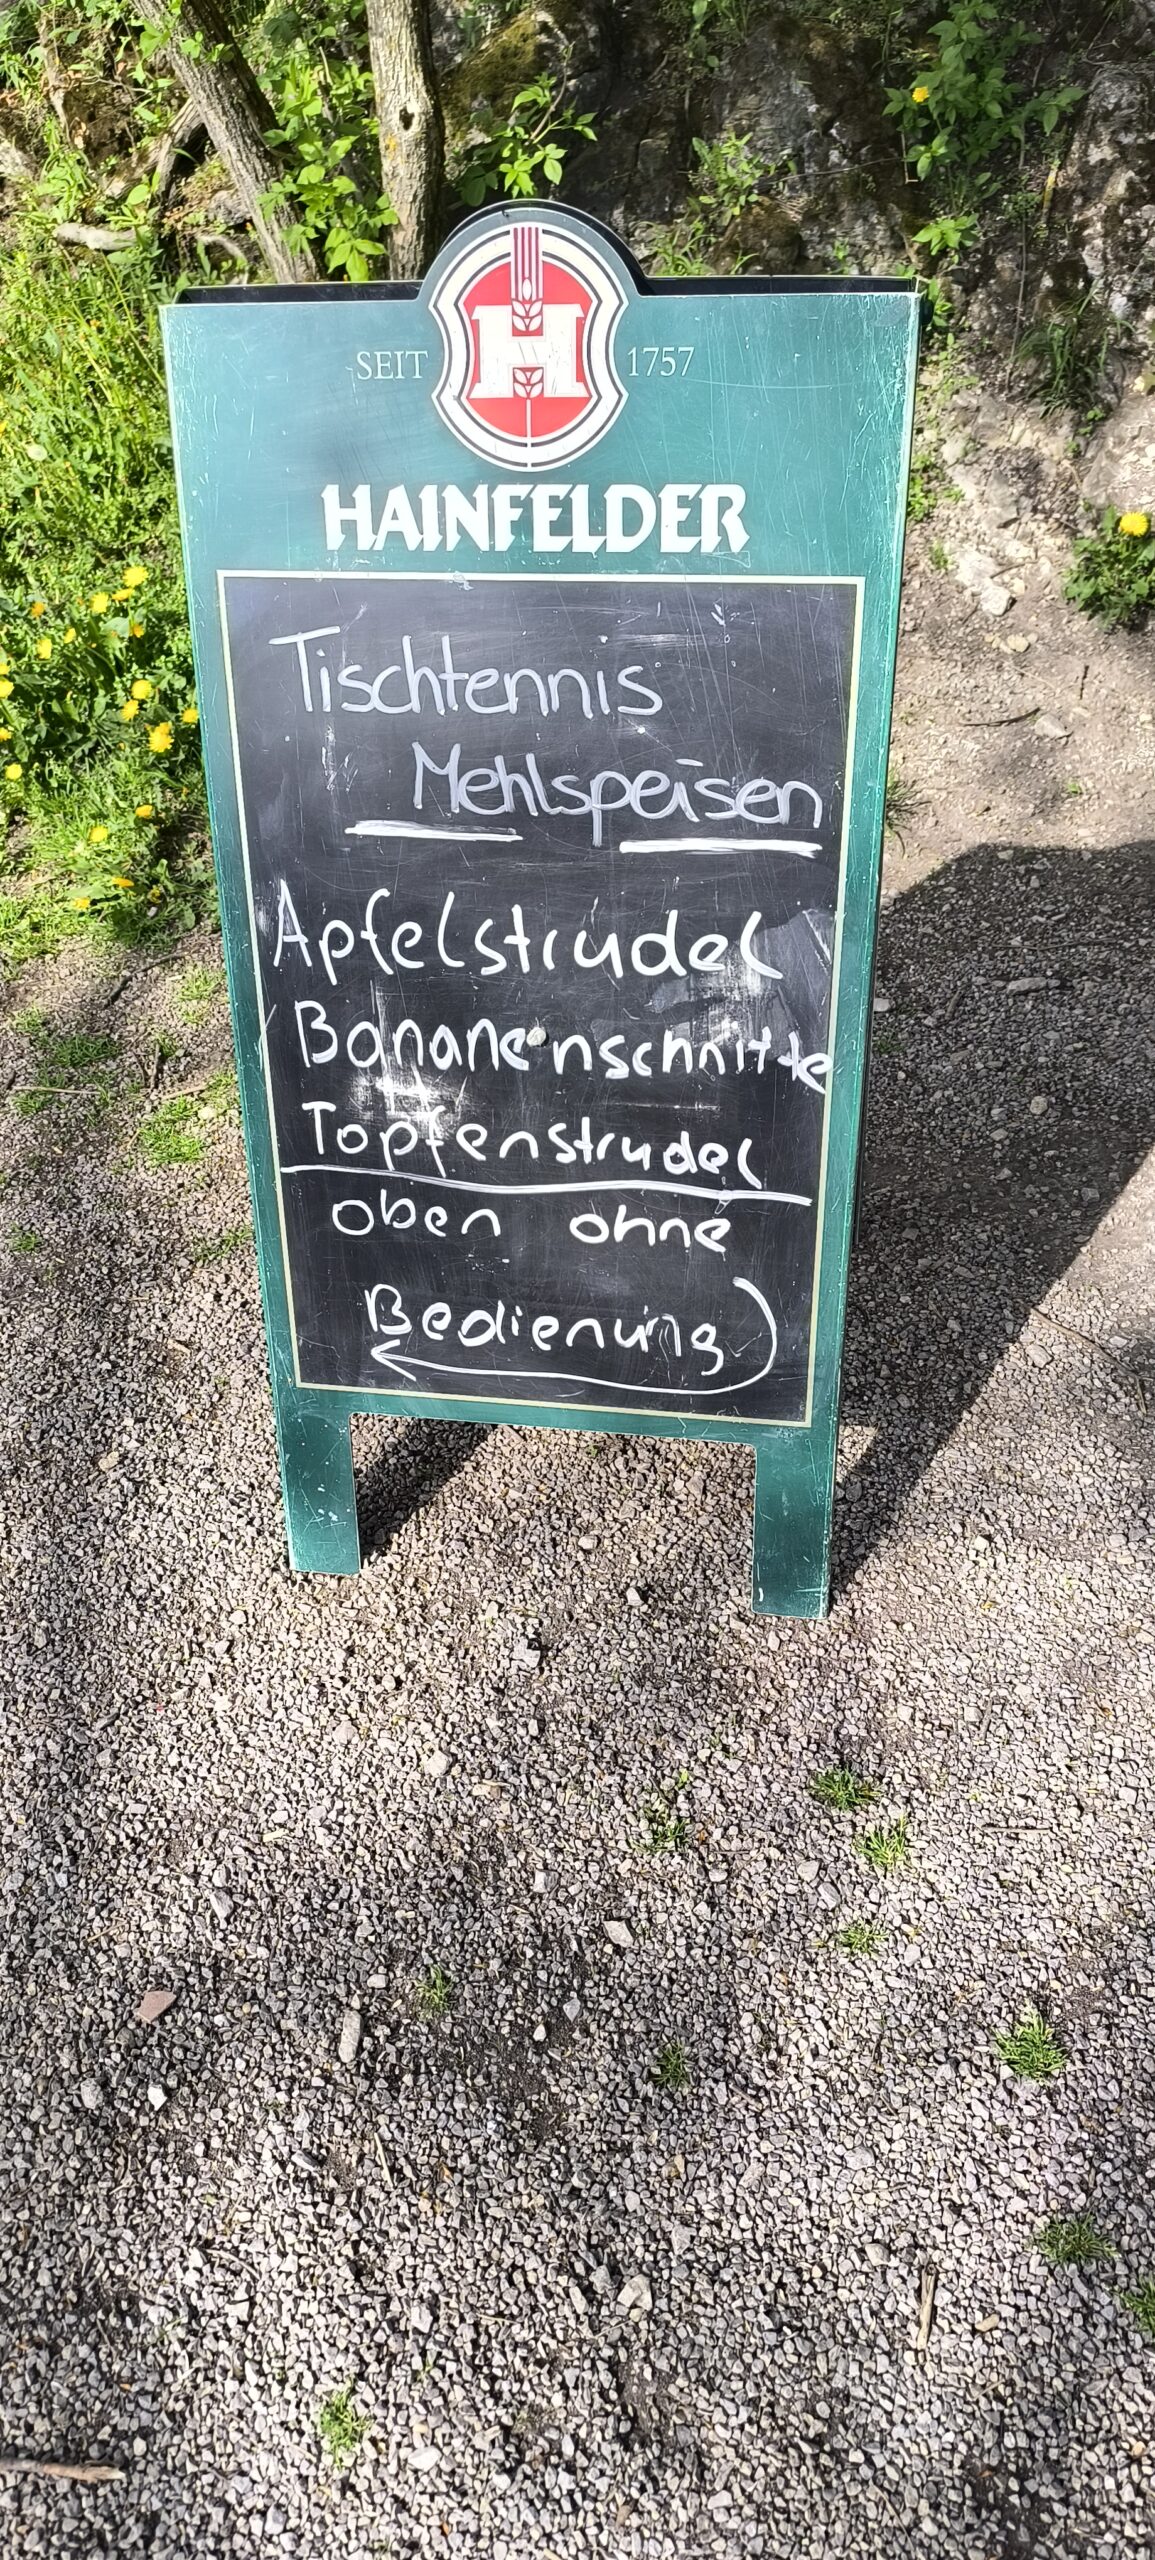 SEIT H 1757
HAINFELDER
Tischtennis
Mehlspeisen
Apfelstrudel
Bananenschnitte
Topfenstrudel
oben ohne
Bedienung